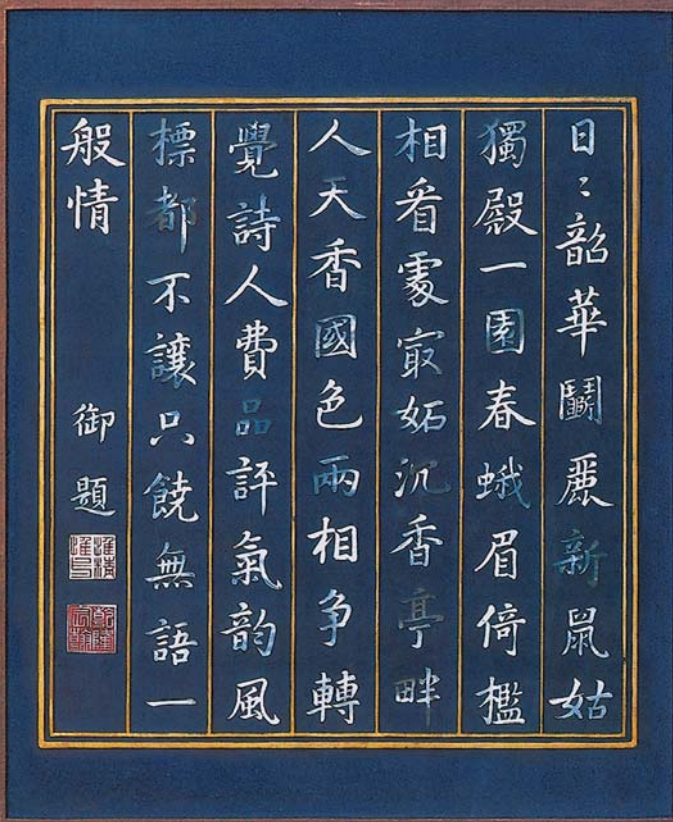 日〻韶華鬭麗新鼠姑
獨殿一園春蛾眉倚檻
相看處㝡妬沉香亭畔
人天香國色兩相爭轉
覺詩人費品評氣韵風
標都不讓只饒無語一
般情
御題
乾隆宸翰